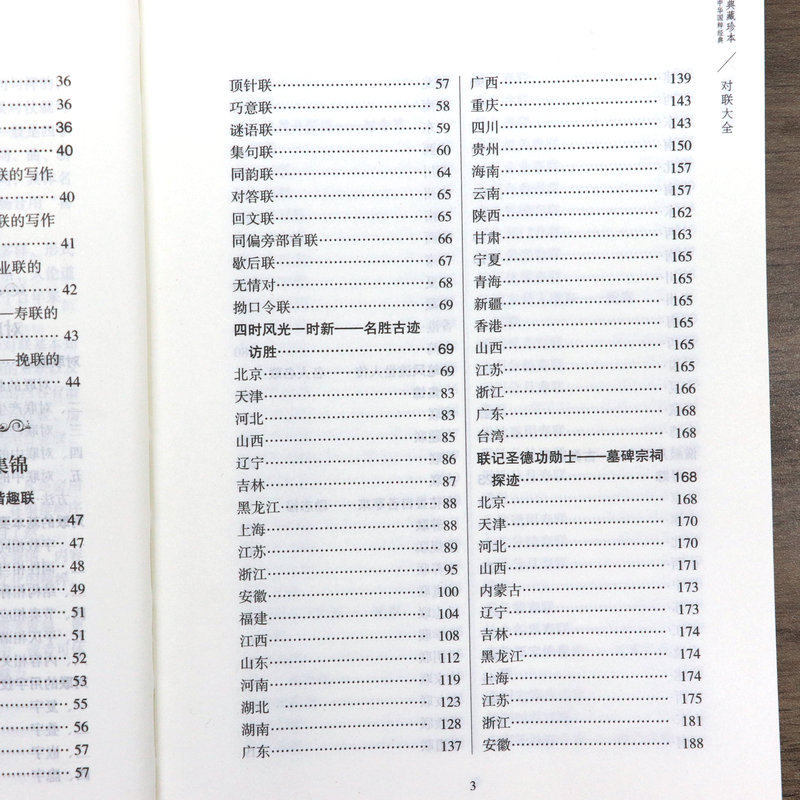 36
36
36
40
联的写作
40
联的写作
41
业联的
42
——寿联的
43
——挽联的
44
集锦
谐趣联
47
47
48
49
51
51
52
53
55
56
57
57
顶针联……57
巧意联……58
谜语联……59
集句联……60
同韵联……64
对答联……65
回文联……65
同偏旁部首联……66
歇后联……67
无情对……68
拗口令联……69
四时风光一时新——名胜古迹
访胜……69
北京……69
天津……83
河北……83
山西……85
辽宁……86
吉林……87
黑龙江……88
上海……88
江苏……89
浙江……95
安徽……100
福建……104
江西……108
山东……112
河南……119
湖北……123
湖南……128
广东……137
广西……139
重庆……143
四川……143
贵州……150
海南……157
云南……157
陕西……162
甘肃……163
宁夏……165
青海……165
新疆……165
香港……165
山西……165
江苏……165
浙江……166
广东……168
台湾……168
联记圣德功勋士——墓碑宗祠
探迹……168
北京……168
天津……170
河北……170
山西……171
内蒙古……173
辽宁……173
吉林……174
黑龙江……174
上海……174
江苏……175
浙江……181
安徽……188
典藏珍本
中华国粹经典
对联大全
3